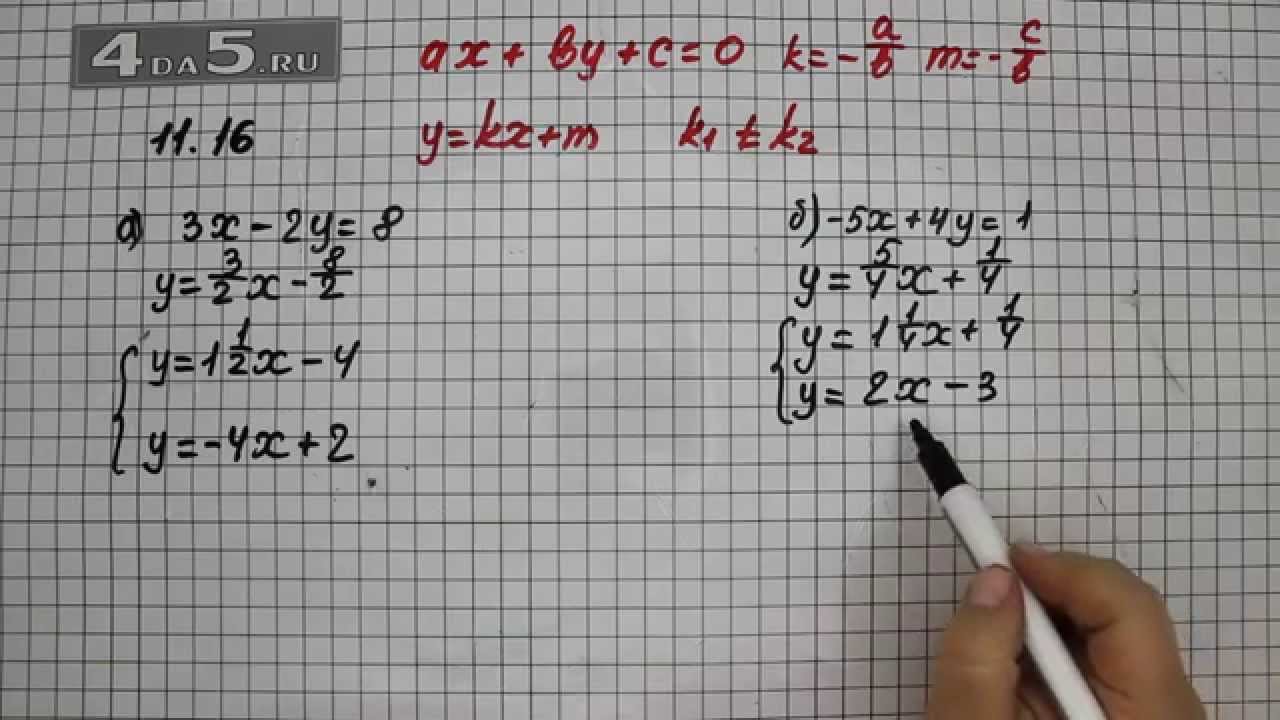 4ДА5.RU
ax + by + c = 0   k = -a/b   m = -c/b
11.16
y = kx + m   k₁ ≠ k₂
а) 3x - 2y = 8
y = 3/2x - 8/2
y = 1 1/2x - 4
y = -4x + 2
б) -5x + 4y = 1
y = 5/4x + 1/4
y = 1 1/4x + 1/4
y = 2x - 3